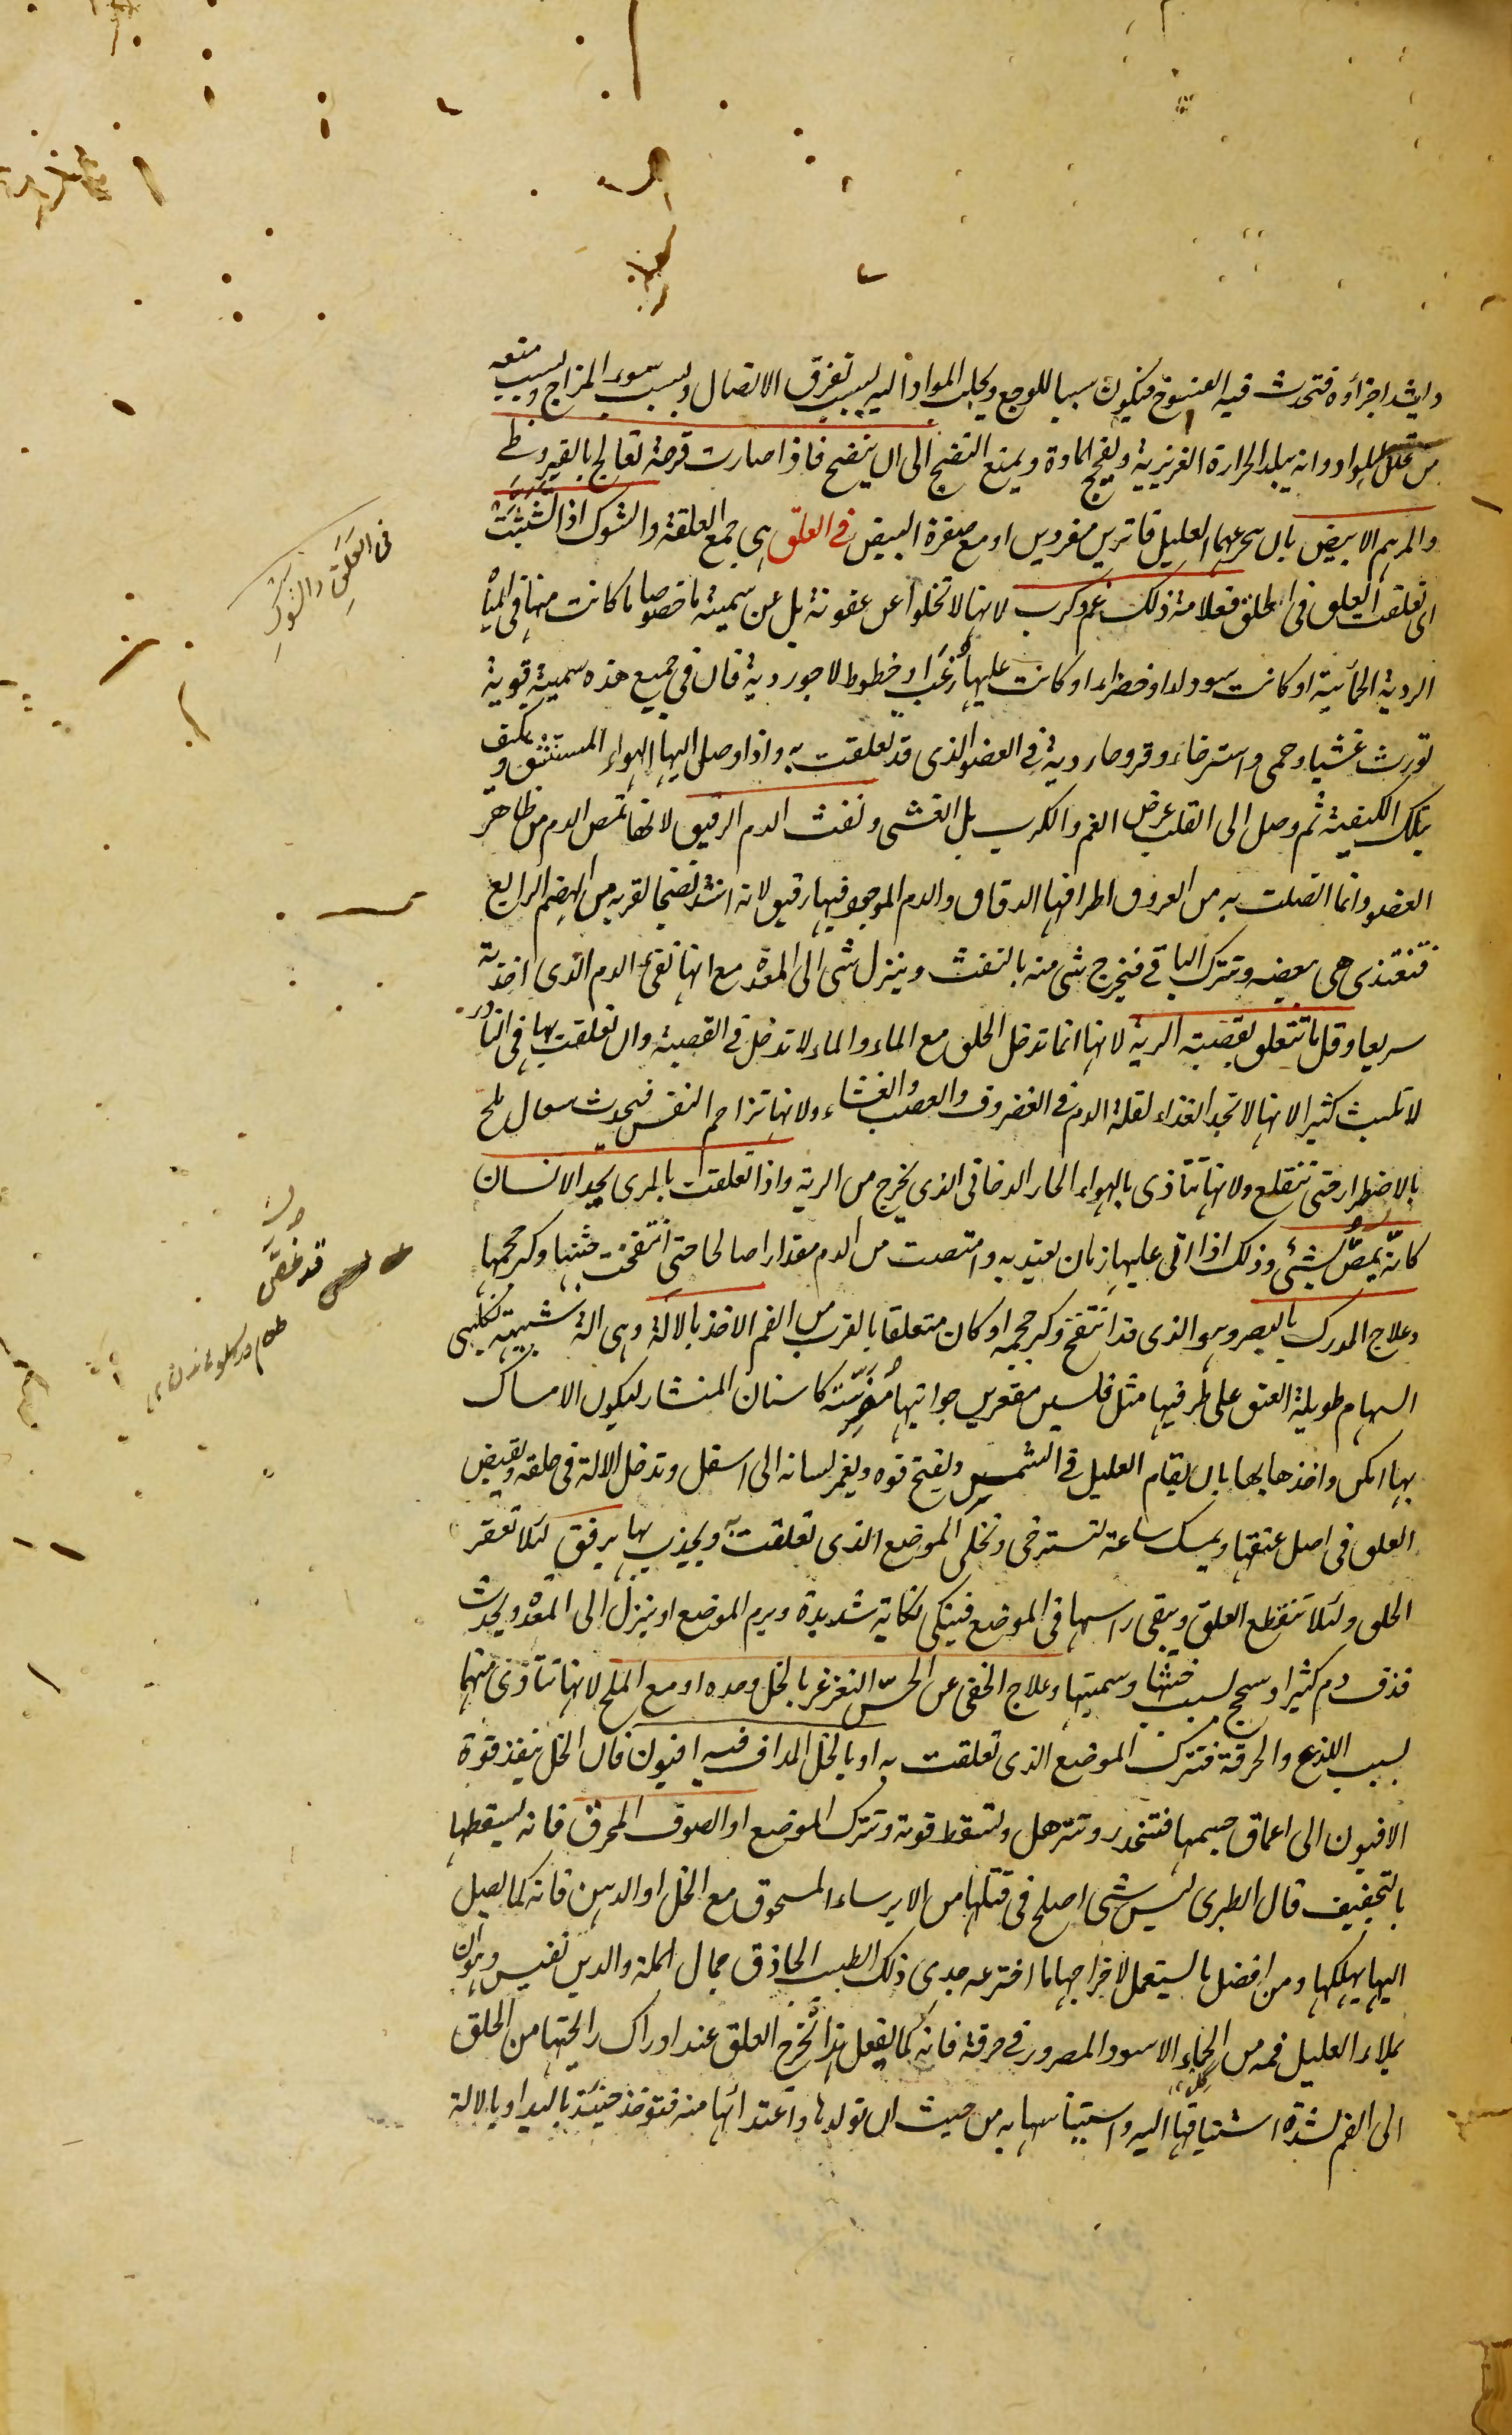 واشد اجزائه فتحدث فيه الفسوخ فيكون سببا للوجع ويجلب المواد اليه بسبب تفرق الاتصال وبسبب سوء المزاج وبسبب منعه
من تحلل المواد وانه يبلد الحرارة الغريزية ويفجج المادة ويمنع النضج الى ان ينضج فاذا صارت قرحة تعالج بالقيروطى
والمرهم الابيض بان يتجرعهما العليل فاترين مفردين او مع صفرة البيض في العلق هي جمع العلقة والشوك اذا نشبت
اى تعلقت العلق فى الحلق فعلامة ذلك غم وكرب لانها لا تخلوا عن عفونة بل عن سمية ما خصوصا ما كانت منها فى المياه
الردية الحمائية او كانت سودا او خضراء او كانت عليها زغب او خطوط لاجوردية فان في جميع هذه سمية قوية
تورث غشيا وحمى واسترخاء وقروحا ردية في العضو الذى قد تعلقت به واذا وصل اليها الهواء المستنشق وتكيف
بتلك الكيفية ثم وصل الى القلب عرض الغم والكرب بل الغشى ونفث الدم الرقيق لانها تمص الدم من ظاهر
العضو وانما اتصلت به من العروق اطرافها الدقاق والدم الموجود فيها رقيق لانه اشد نضجا لقربه من الهضم الرابع
فتغتذى هى ببعضه وتترك الباقي فيخرج شئ منه بالنفث وينزل شئ الى المعدة مع انها تقئ الدم الذى اخذته
سريعا وقل ما تتعلق بقصبة الرية لانها انما تدخل الحلق مع الماء والماء لا تدخل في القصبة وان تعلقت بها فى النادر
لا تلبث كثيرا لانها لا تجد الغذاء لقلة الدم في الغضروف والعصب والغشاء ولانها تزاحم النفس فيحدث سعال ملح
بالاضطرار حتى تنقلع ولانها تتأذى بالهواء الحار الدخانى الذى يخرج من الرية واذا تعلقت بالمرى يجد الانسان
كانه يمص بشئ وذلك اذا اتى عليها زمان يعتد به وامتصت من الدم مقدارا صالحا حتى انتفخت جثتها وكبر حجمها
وعلاج المدرك بالبصر وهو الذى قد انتفخ وكبر حجمه او كان متعلقا بالقرب من الفم الاخذ بالالة وهى الة شبيهة بكلبتى
السهام طويلة العنق على طرفيها مثل فلسين مقعرين جوانبها مضرسة كاسنان المنشار ليكون الامساك
بها امكن واخذها بها بان يقام العليل في الشمس ويفتح فوه ويغمز لسانه الى اسفل وتدخل الالة فى حلقه ويقبض
العلق فى اصل عنقها ويمسك ساعة لتسترخى وتخلى الموضع الذى تعلقت به ويجذب بها برفق لئلا تعقر
الحلق ولئلا تنقطع العلق ويبقى راسها فى الموضع فينكى نكاية شديدة ويرم الموضع او ينزل الى المعدة ويحدث
قذف دم كثير او سحج بسبب خبثها وسميتها وعلاج الخفى عن الحس التغرغر بالخل وحده او مع الملح لانها تتأذى منهما
بسبب اللذع والحرقة فتترك الموضع الذى تعلقت به او بالخل المداف فيه افيون فان الخل ينفذ قوة
الافيون الى اعماق جسمها فتتخدر وتترهل وتسقط قوته وتترك الموضع او الصوف المحرق فانه يسقطها
بالتجفيف قال الطبرى ليس شى اصلح فى قتلها من الايرساء المسحوق مع الخل او الدهن فانه كما يصل
اليها يهلكها ومن افضل ما يستعمل لاخراجها ما اخترعه جدى ذلك الطبيب الحاذق جمال الملة والدين نفيس وهو ان
يملاء العليل فمه من الحماء الاسود المصرور في خرقة فانه كما يفعل هذا تخرج العلق عند ادراك رايحتها من الحلق
الى الفم لشدة اشتياقها اليه واستيناسها به من حيث ان تولدها واغتذائها منه فتوخذ حينئذ باليد او بالالة
فى العَلَقِ والشوكِ